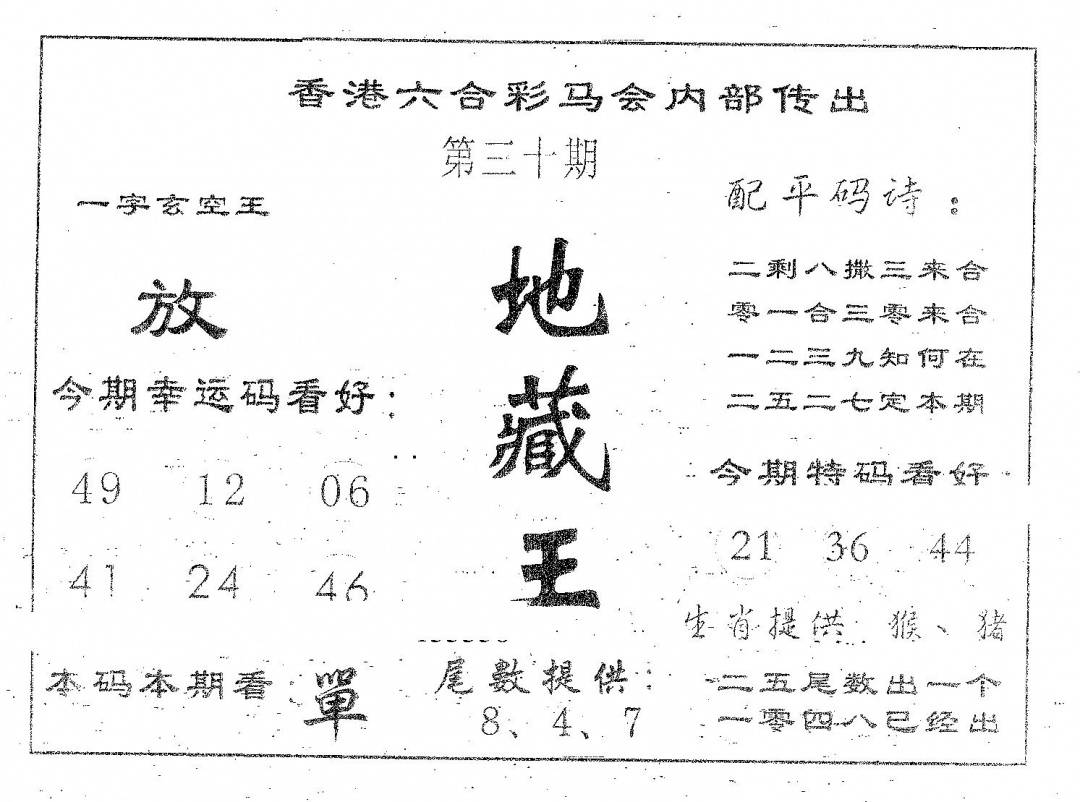 香港六合彩马会内部传出
第三十期
一字玄空王
放
今期幸运码看好：
49 12 06
41 24 46
本码本期看：單
地藏王
尾數提供：
8、4、7
配平码诗：
二剩八撒三来合
零一合三零来合
一二三九知何在
二五二七定本期
今期特码看好
21 36 44
生肖提供：猴、猪
二五尾数出一个
一零四八已经出